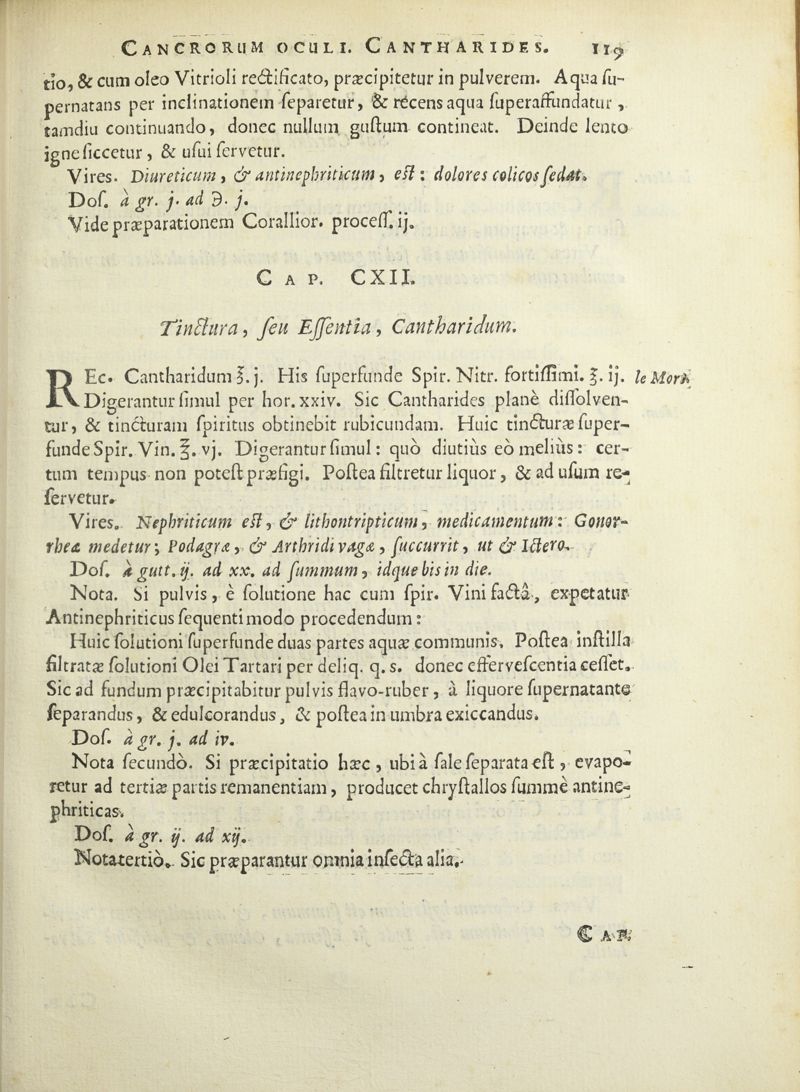 CANCRORUM OCULI. CANTHARIDES. 119
tio, & cum oleo Vitrioli rectificato, præcipitetur in pulverem. Aqua ſu-
pernatans per inclinationem ſeparetur, & recens aqua ſuperaffundatur,
tamdiu continuando, donec nullum guſtum contineat. Deinde lento
igne ſiccetur, & uſui ſervetur.
Vires. Diureticum, & antinephriticum, eſt: dolores colicos ſedat.
Doſ. à gr. j. ad ℈. j.
Vide præparationem Corallior. proceſſ. ij.
CAP. CXII.
Tinctura, ſeu Eſſentia, Cantharidum.
REc. Cantharidum ℥. j. His ſuperfunde Spir. Nitr. fortiſſimi. ℥. ij. le Mort.
Digerantur ſimul per hor. xxiv. Sic Cantharides planè diſſolven-
tur, & tincturam ſpiritus obtinebit rubicundam. Huic tincturæ ſuper-
funde Spir. Vin. ℥. vj. Digerantur ſimul: quò diutiùs eò meliùs: cer-
tum tempus non poteſt præfigi. Poſtea filtretur liquor, & ad uſum re-
ſervetur.
Vires. Nephriticum eſt, & lithontripticum, medicamentum: Gonor-
rheæ medetur; Podagræ, & Arthridi vagæ, ſuccurrit, ut & Ictero.
Doſ. à gutt. ij. ad xx. ad ſummum, idque bis in die.
Nota. Si pulvis, è ſolutione hac cum ſpir. Vini factâ, expetatur
Antinephriticus ſequenti modo procedendum:
Huic ſolutioni ſuperfunde duas partes aquæ communis. Poſtea inſtilla
filtratæ ſolutioni Olei Tartari per deliq. q. s. donec efferveſcentia ceſſet.
Sic ad fundum præcipitabitur pulvis flavo-ruber, à liquore ſupernatante
ſeparandus, & edulcorandus, & poſtea in umbra exiccandus.
Doſ. à gr. j. ad iv.
Nota ſecundò. Si præcipitatio hæc, ubi à ſale ſeparata eſt, evapo-
retur ad tertiæ partis remanentiam, producet chryſtallos ſummè antine-
phriticas.
Doſ. à gr. ij. ad xij.
Nota tertiò. Sic præparantur omnia inſecta alia.
CAP.